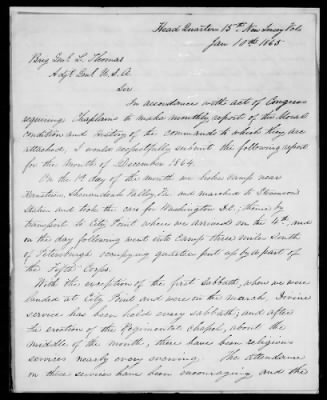 Head Quarters 15th New Jersey Vols
Jan 10th 1865
Brig Genl L. Thomas
Adjt Genl U.S.A.
Sir
In accordance with act of Congress
requiring Chaplains to make monthly reports of the Moral
condition and history of the commands to which they are
attached, I would respectfully submit the following report
for the Month of December 1864.
On the 1st day of the month we broke camp near
Kernstown, Shenandoah Valley, Va and marched to Stevenson
Station and took the cars for Washington D.C., thence by
transport to City Point where we arrived on the 4th, and
on the day following went into Camp three miles South
of Petersburgh occupying quarters put up by a part of
the Fifth Corps.
With the exception of the first Sabbath, when we were
landed at City Point and were on the march, Divine
service has been held every sabbath; and after
the erection of the Regimental Chapel, about the
middle of the month, there have been religious
services nearly every evening. The attendance
on these services have been encouraging and the